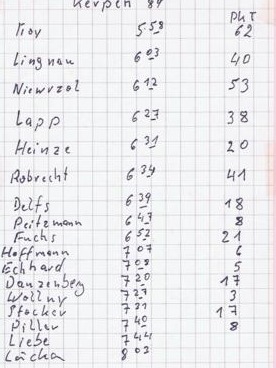 Kerpen 84
Pkt
Troy 5 58 62
Lingnau 6 03 40
Niewrzol 6 12 53
Lapp 6 27 38
Heinze 6 31 20
Robrecht 6 34 41
Delfs 6 39 18
Peitzmann 6 47 8
Fuchs 6 52 21
Hoffmann 7 07 6
Eckhard 7 08 5
Danzenberg 7 20 17
Wollny 7 27 3
Stocker 7 31 17
Piller 7 40 8
Liebe 7 44
8 03